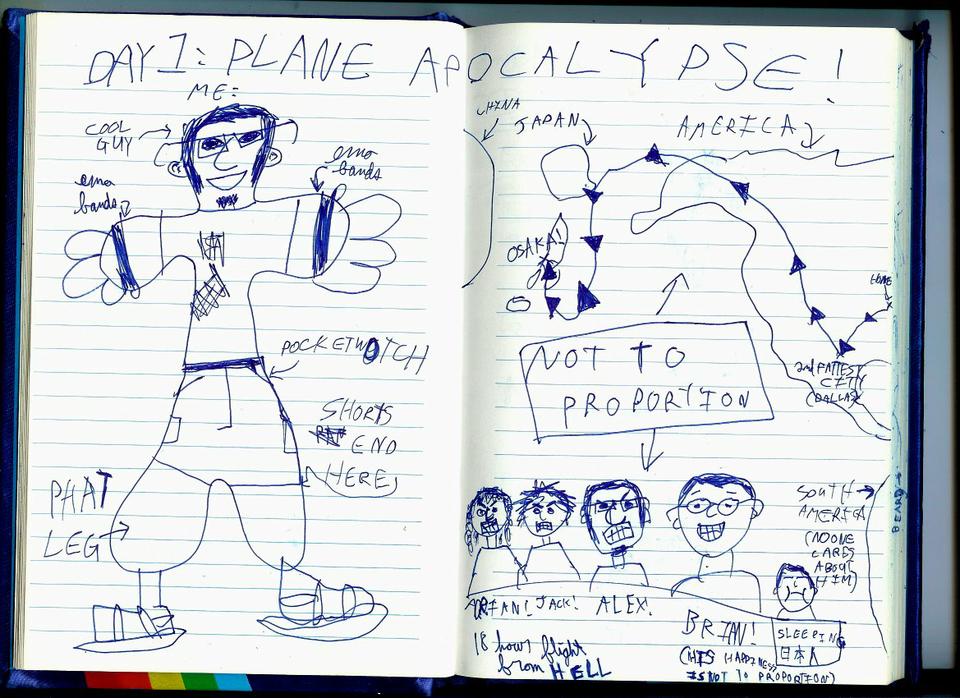 DAY 1: PLANE APOCALYPSE!
ME:
COOL
GUY
emo
bands
emo
bands
POCKETWOTCH
SHORTS
END
HERE
PHAT
LEG
CHINA
JAPAN
AMERICA
OSAKA!
HOME
2nd FATTEST
CITY
(DALLAS)
NOT TO
PROPORTION
SOUTH
AMERICA
(NO ONE
CARES
ABOUT
HIM)
BEARD
BRIAN! JACK! ALEX!
BRIAN!
(HIS HAPPINESS
IS NOT TO PROPORTION)
SLEEPING
日本人
18 hours flight
from HELL